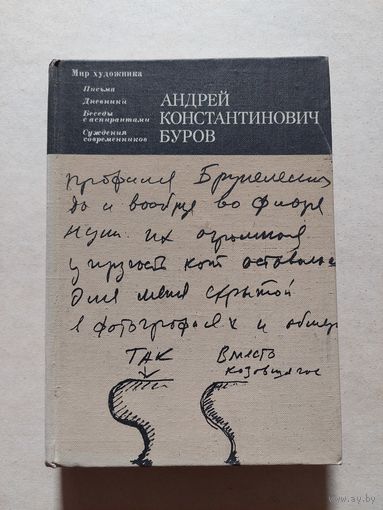 Мир художника
Письма
Дневники
Беседы
с аспирантами
Суждения
современников
АНДРЕЙ
КОНСТАНТИНОВИЧ
БУРОВ
профиля Брунеллеско
да и вообще во Флоре
их огромная
упругость кот оставалась
для меня скрытой
в фотографиях и обмер
ТАК
Вместо
www.ay.by